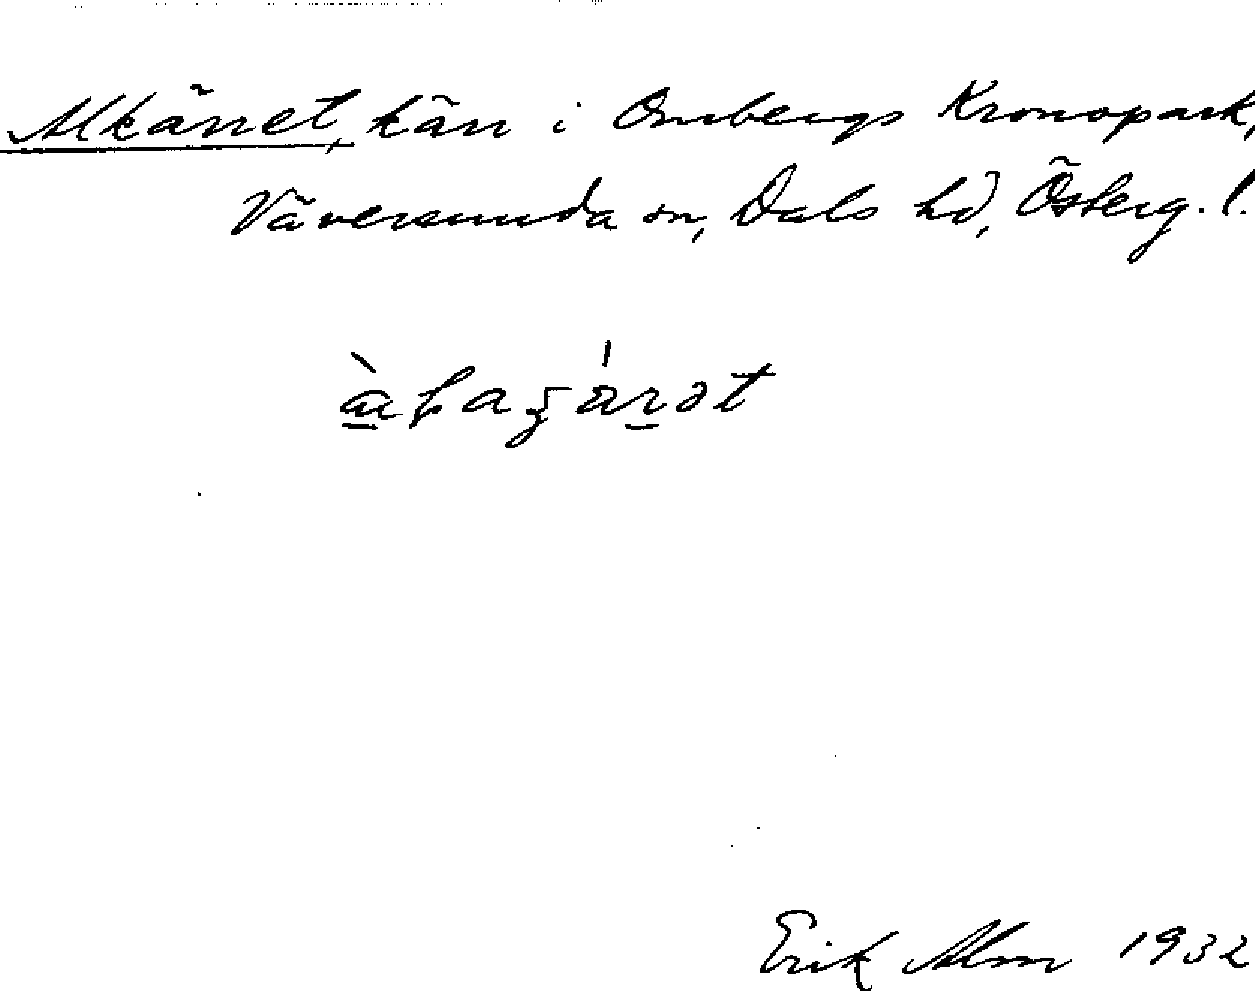 Alkärret, kärr i Ombergs Kronopark,
Väversunda sn, Dals hd, Österg. l.
Erik Alm 1932